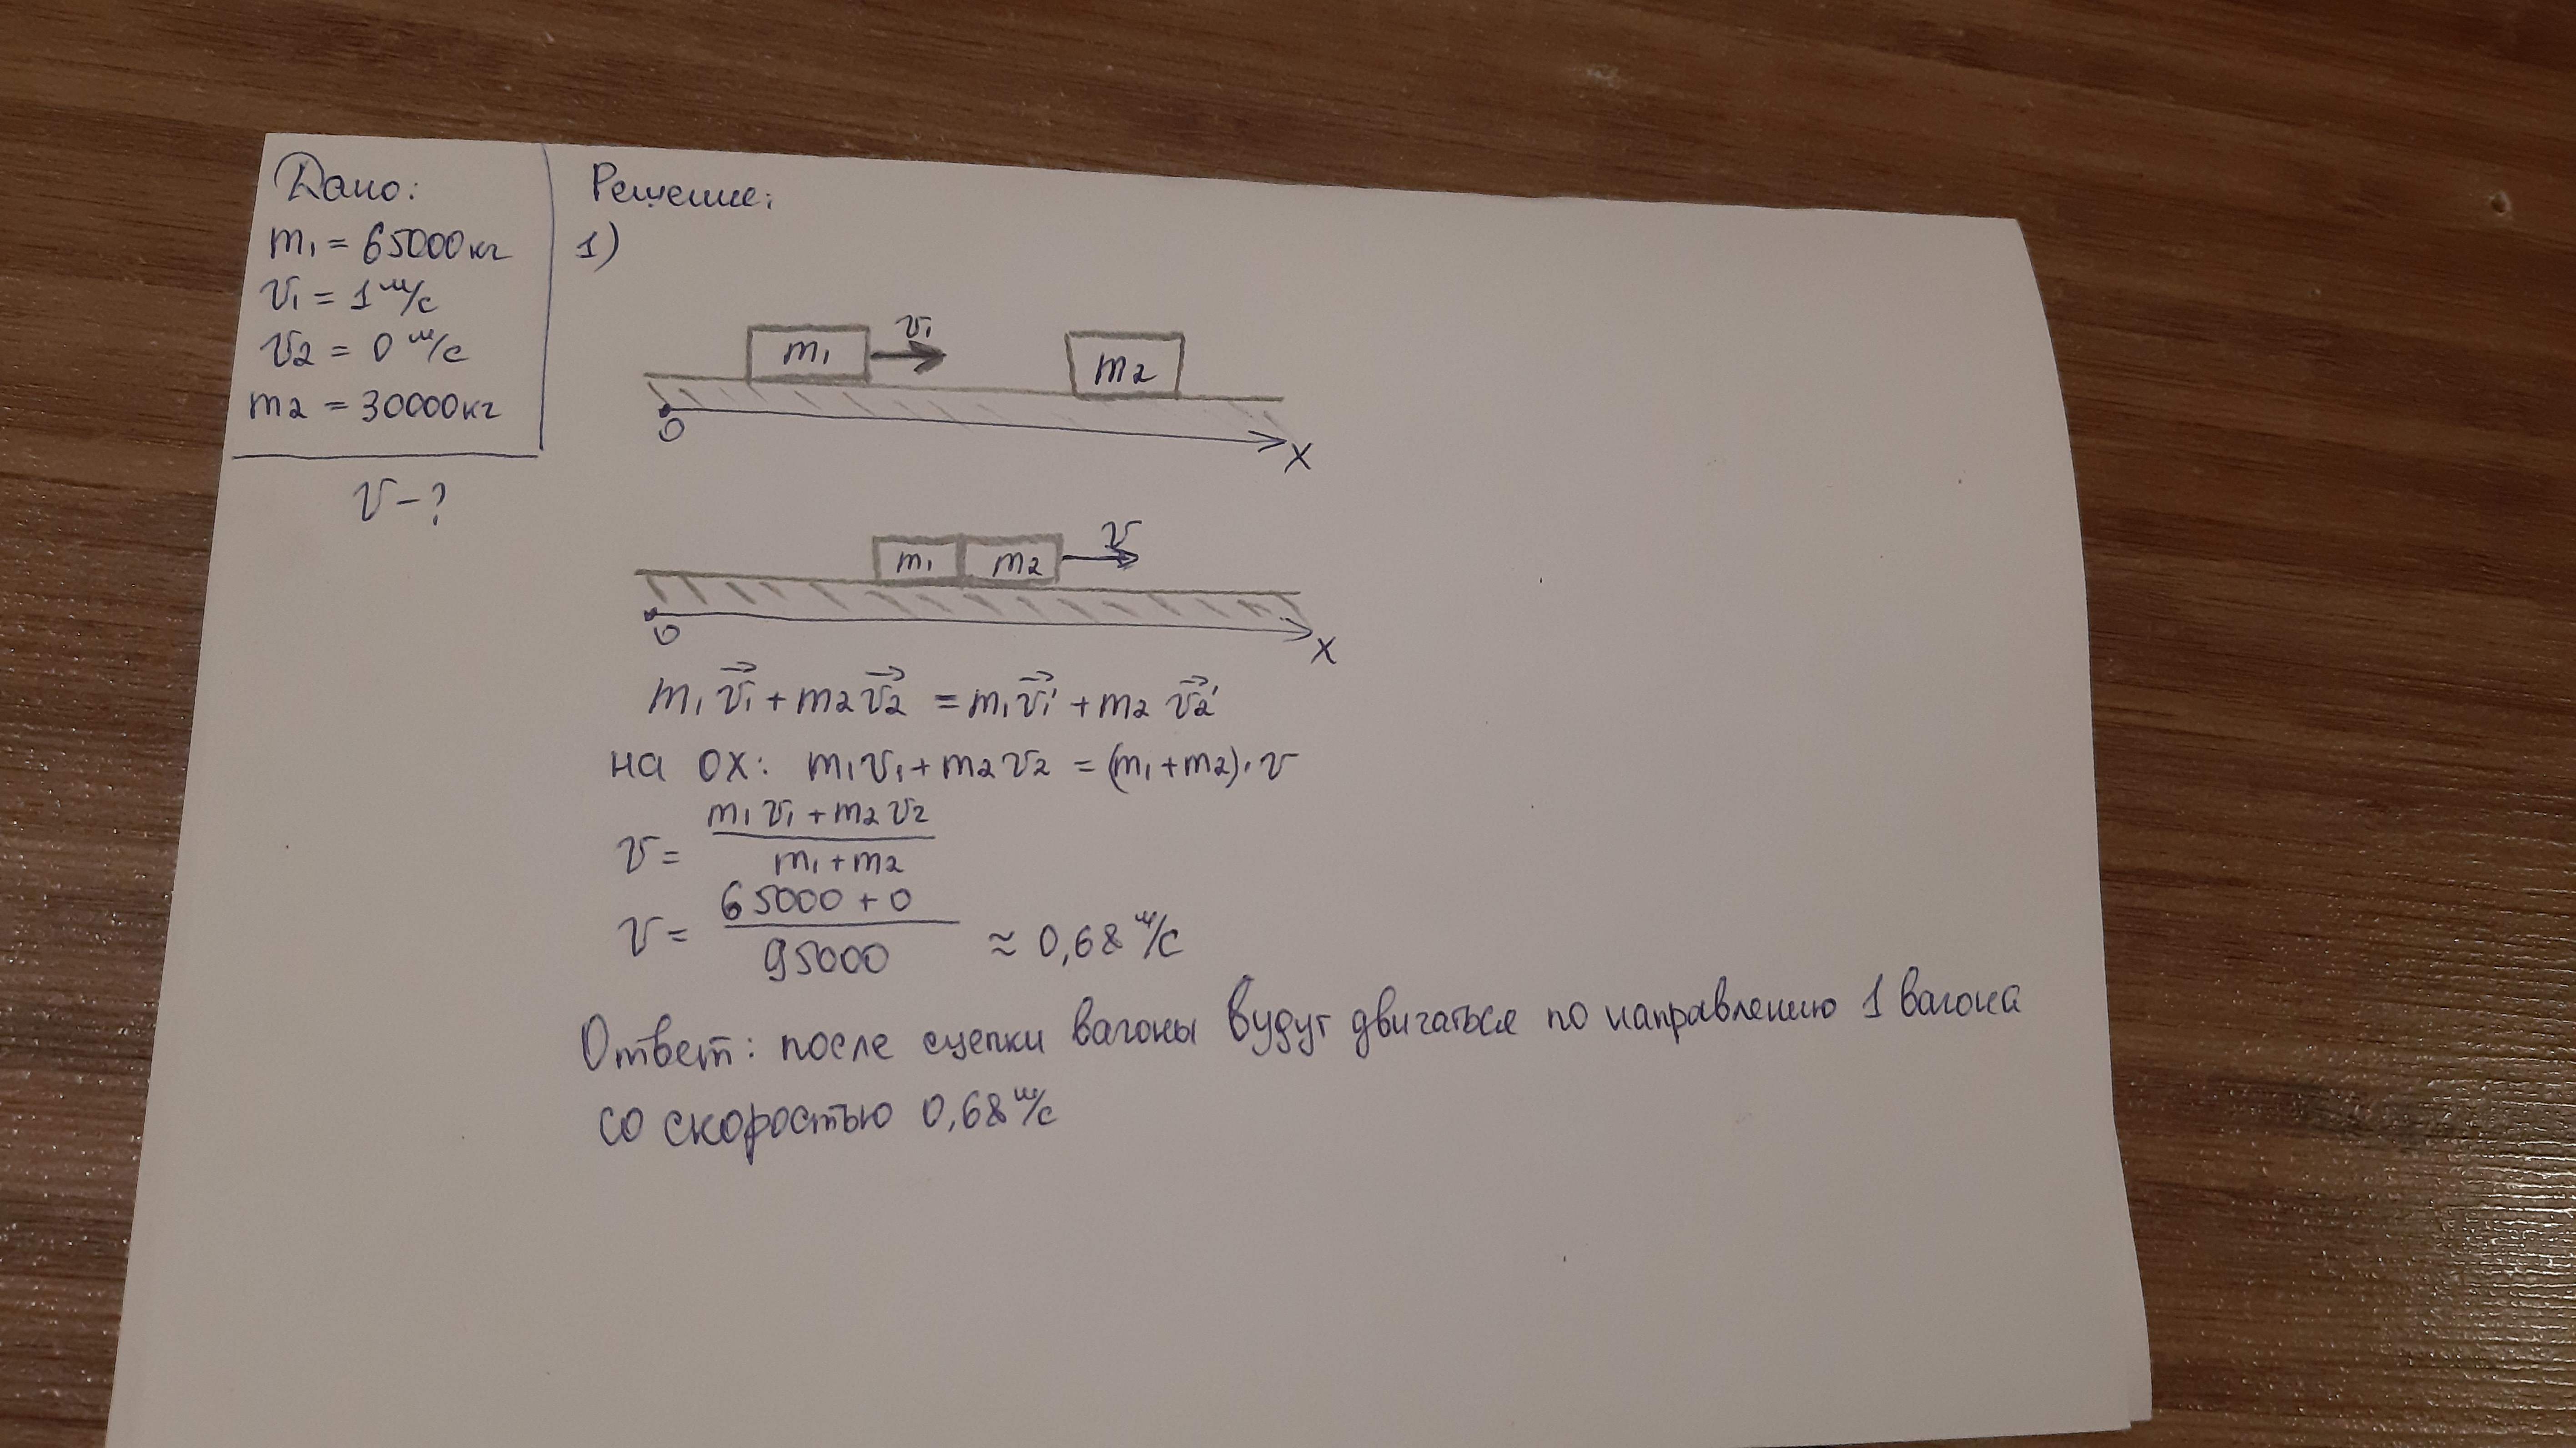 Дано:
m₁ = 65000 кг
v₁ = 1 м/с
v₂ = 0 м/с
m₂ = 30000 кг
v – ?
Решение:
1)
m₁
v₁
m₂
0
x
m₁
m₂
v
0
x
m₁v₁⃗ + m₂v₂⃗ = m₁v₁⃗' + m₂v₂⃗'
на ОХ: m₁v₁ + m₂v₂ = (m₁ + m₂) · v
v = (m₁v₁ + m₂v₂) / (m₁ + m₂)
v = (65000 + 0) / 95000 ≈ 0,68 м/с
Ответ: после сцепки вагоны будут двигаться по направлению 1 вагона
со скоростью 0,68 м/с